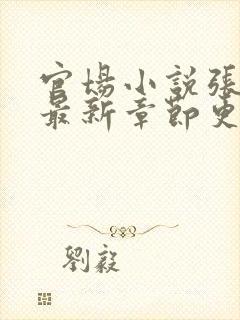 官場小說張
最新章節更
劉毅